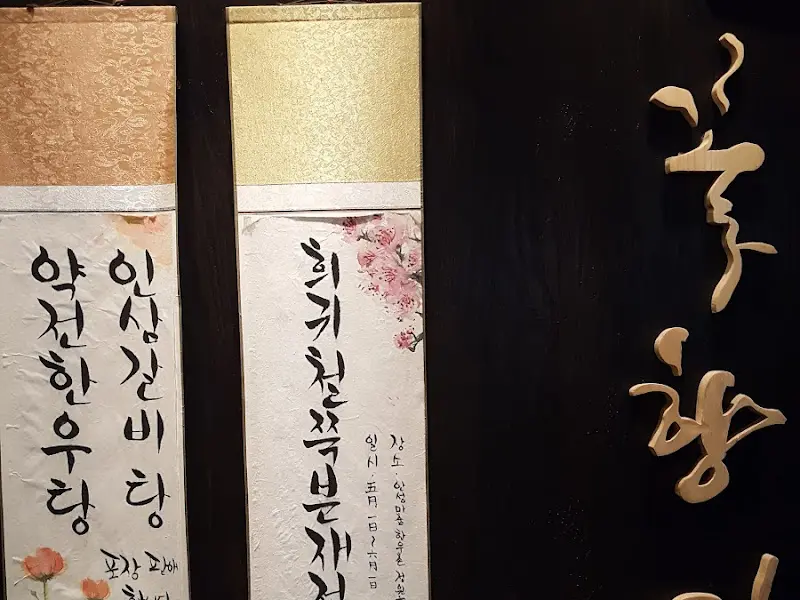 인삼갈비탕
약전한우탕
포장 판매
희귀철쭉분재전
장소·안성마춤한우촌 정원
일시·五月一日~六月一日
꽃
향